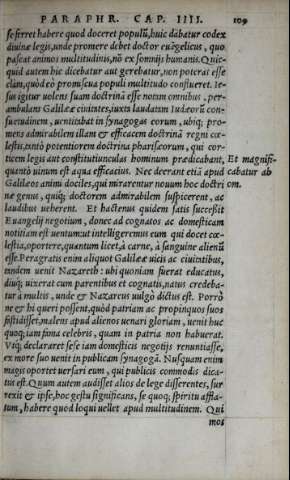 PARAPHR. CAP. IIII. 109
se ferret habere quod doceret populũ, huic dabatur codex
diuinæ legis, unde promere debet doctor euãgelicus, quo
pascat animos multitudinis, nõ ex somnijs humanis. Quic-
quid autem hic dicebatur aut gerebatur, non poterat esse
clam, quòd eò promiscua populi multitudo conflueret. Ie-
sus igitur uolens suam doctrinã esse notam omnibus, per-
ambulans Galilææ ciuitates, iuxta laudatam Iudæorũ con-
suetudinem, uentitabat in synagogas eorum, ubiq; pro-
mens admirabilem illam & efficacem doctrinã regni cœ-
lestis, nntò potentiorem doctrina pharisæorum, qui cor-
ticem legis aut constitutiunculas hominum prædicabant, Et magnifi-
quantò uinum est aqua efficacius. Nec deerant etiã apud cabatur ab
Galilæos animi dociles, qui mirarentur nouum hoc doctri om.
næ genus, quiq; doctorem admirabilem suspicerent, ac
laudibus ueherent. Et hactenus quidem satis successit
Euangelij negotium, donec ad cognatos ac domesticam
notitiam est uentum: ut intelligeremus eum qui docet cœ-
lestia, oportere, quantum licet, à carne, à sanguine alienũ
esse. Peragratis enim aliquot Galilææ uicis ac ciuitatibus,
tandem uenit Nazareth: ubi quoniam fuerat educatus,
diuq; uixerat cum parentibus et cognatis, natus credeba-
tur à multis, unde & Nazaræus uulgò dictus est. Porrò
ne & hi queri possent, quòd patriam ac propinquos suos
fastidisset, malens apud alienos uenari gloriam, uenit huc
quoq; iam fama celebris, quam in patria non habuerat.
Vtq; declararet sese iam domesticis negotijs renuntiasse,
ex more suo uenit in publicam synagogã. Nusquam enim
magis oportet uersari eum, qui publicis commodis dica-
tus est. Quum autem audisset alios de lege disserentes, sur
rexit & ipse, hoc gestu significans, se quoq; spiritu affla-
tum, habere quod loqui uellet apud multitudinem. Qui
mos